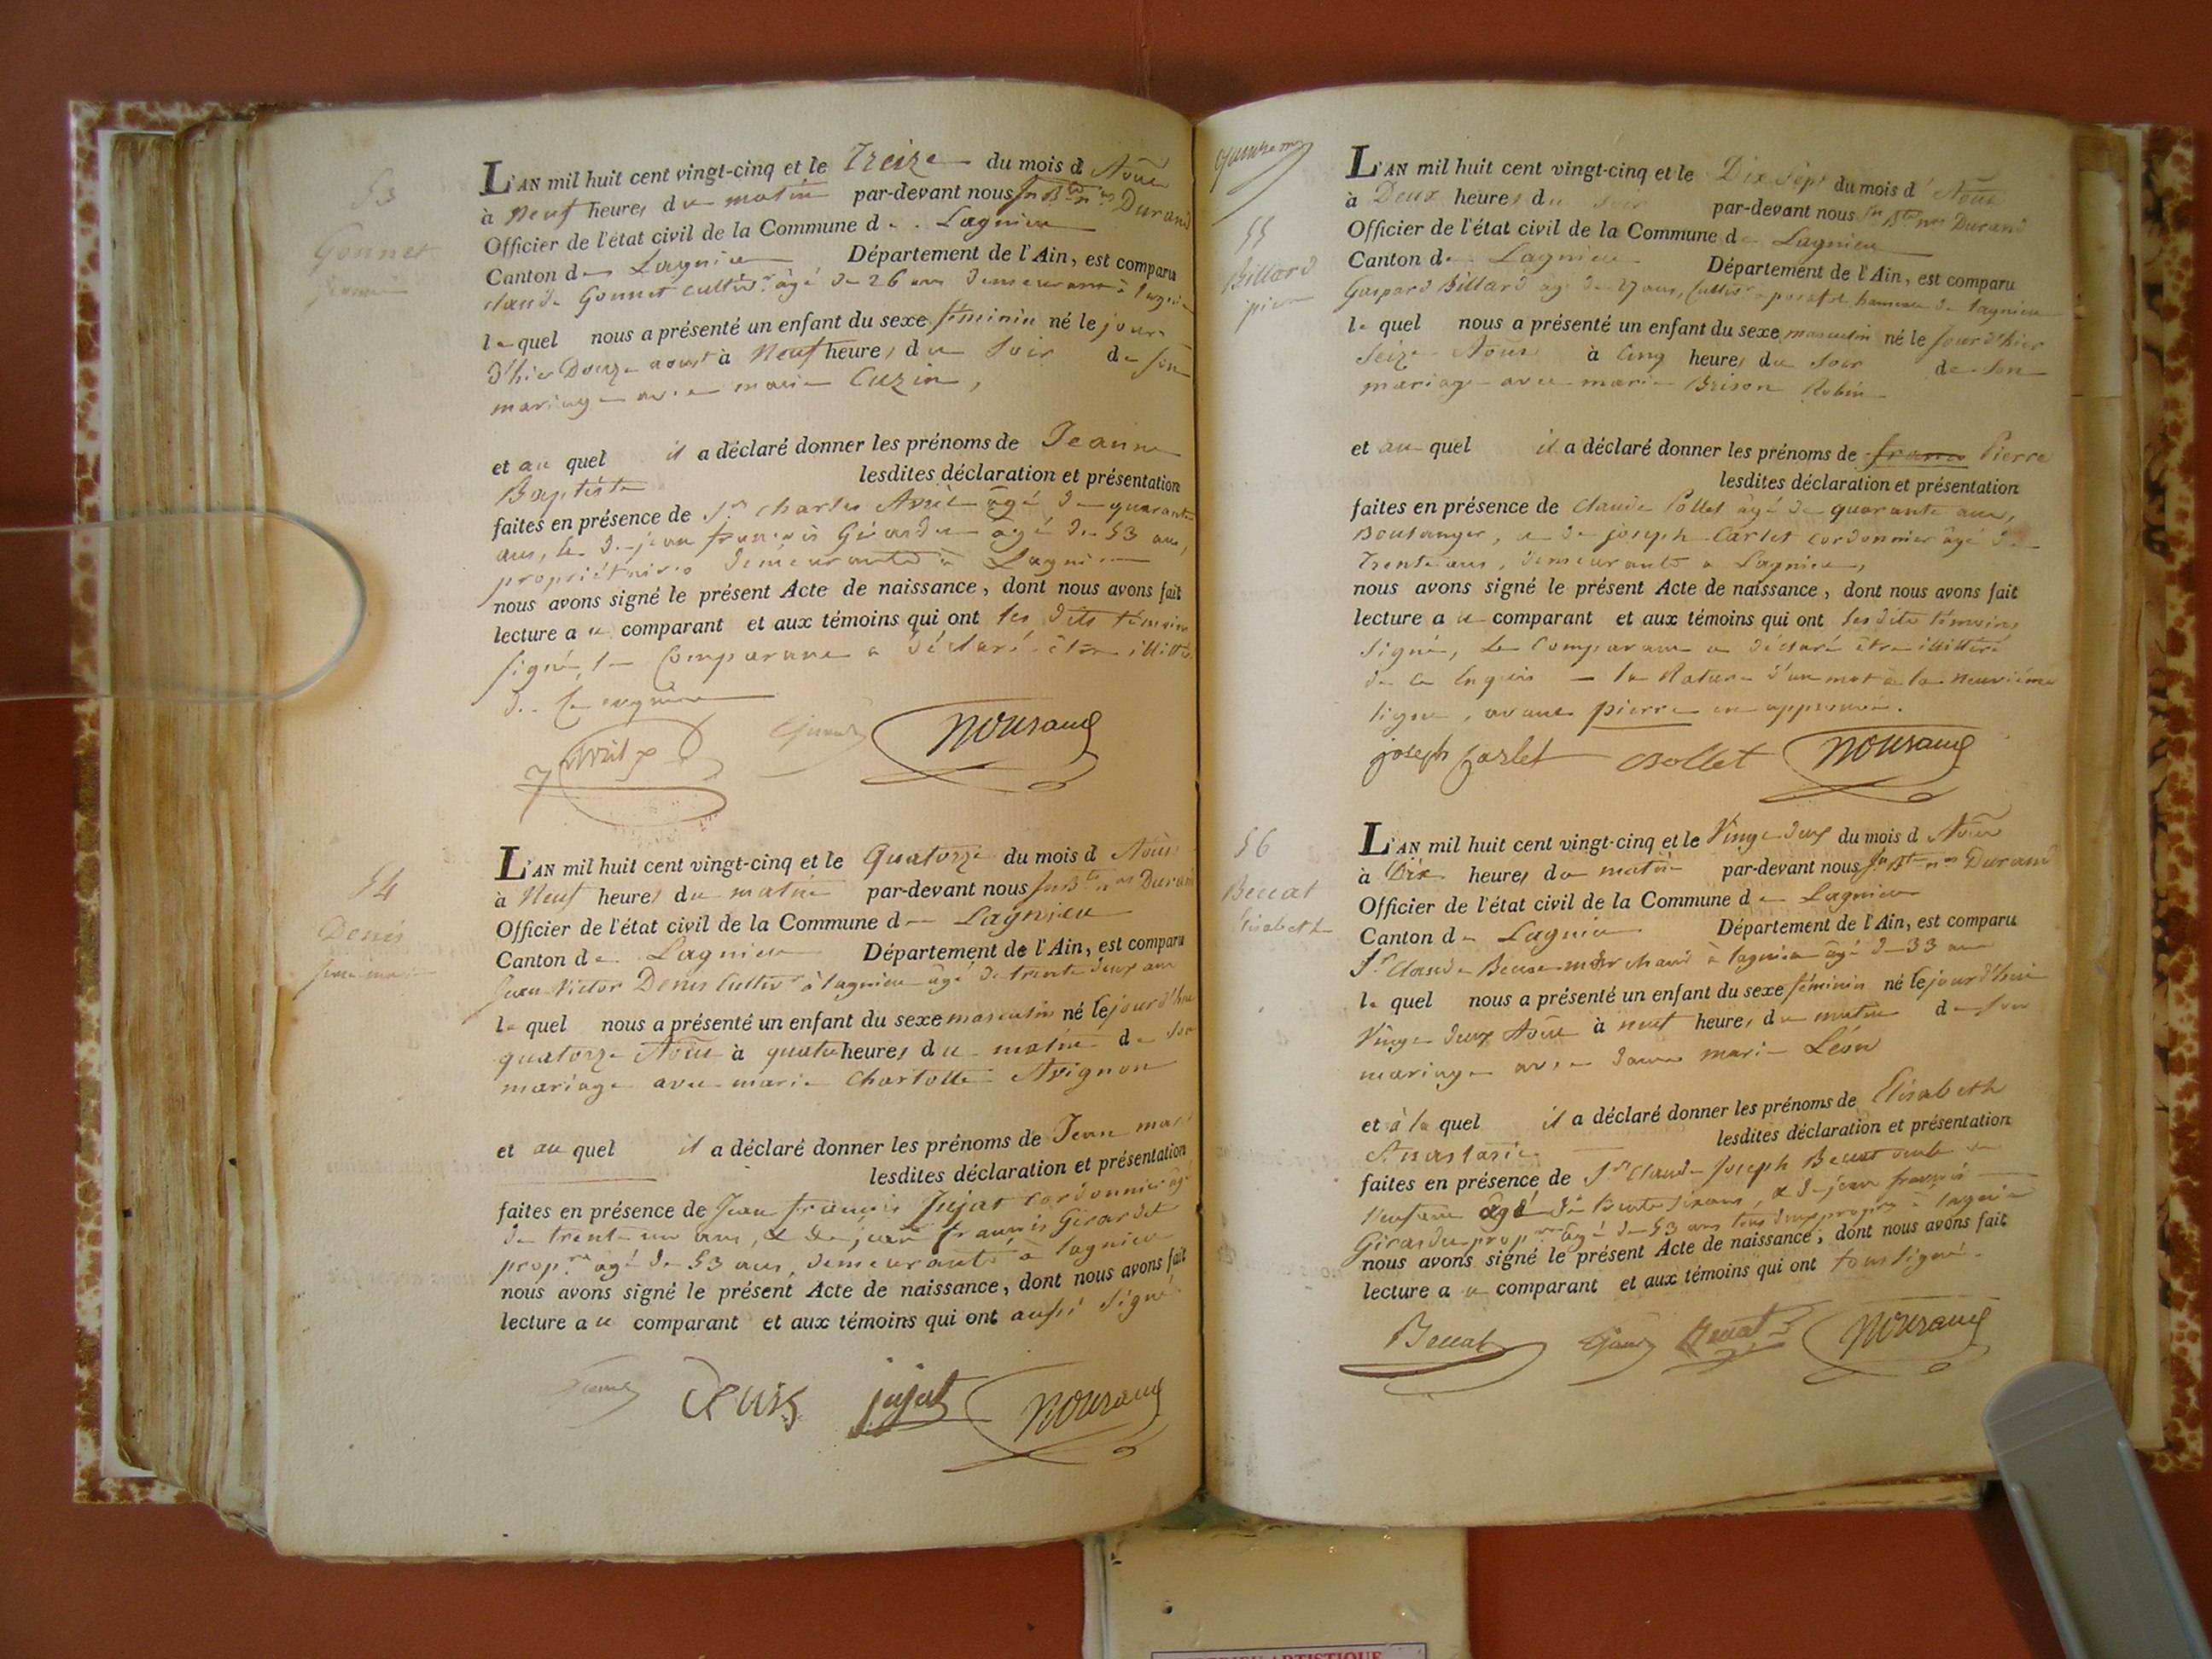 53
Gonnet
L'AN mil huit cent vingt-cinq et le Treize du mois d Aout
à Neuf heures du matin par-devant nous Jn Bte nas Durand
Officier de l'état civil de la Commune de Lagnieu
Canton de Lagnieu Département de l'Ain, est comparu
claude Gonnet cultivr âgé de 26 ans demeurant à lagnieu
le quel nous a présenté un enfant du sexe féminin né le jour
d'hier Douze aoust à Neuf heures du Soir de son
mariage avec marie Cuzin,
et au quel il a déclaré donner les prénoms de Jeanne
Baptiste lesdites déclaration et présentation
faites en présence de Sr Charles Avril âgé de quarante
ans, & de jean françois Girardet âgé de 53 ans,
propriétaires demeurants à Lagnieu
nous avons signé le présent Acte de naissance, dont nous avons fait
lecture au comparant et aux témoins qui ont les dits témoins
signé, le Comparant a déclaré être illitéré
de ce enquis
Avril
NDurand
54
Denis
Jean marie
L'AN mil huit cent vingt-cinq et le Quatorze du mois d Aout
à Neuf heures du matin par-devant nous Jn Bte nas Durand
Officier de l'état civil de la Commune de Lagnieu
Canton de Lagnieu Département de l'Ain, est comparu
Jean Victor Denis Cultivr à lagnieu âgé de trente deux ans
le quel nous a présenté un enfant du sexe masculin né le jour d'hui
quatorze Aout à quatre heures du matin de son
mariage avec marie Charlotte Avignon
et au quel il a déclaré donner les prénoms de Jean marie
lesdites déclaration et présentation
faites en présence de Jean françois Jujat Cordonnier âgé
de trente un ans, & de jean françois Girardet
propre âgé de 53 ans, demeurants à lagnieu
nous avons signé le présent Acte de naissance, dont nous avons fait
lecture au comparant et aux témoins qui ont aussi signé
Denis jujat NDurand
55
Billard
pierre
L'AN mil huit cent vingt-cinq et le Dix sept du mois d' Aout
à Deux heures du soir par-devant nous Jn Bte nas Durand
Officier de l'état civil de la Commune de Lagnieu
Canton de Lagnieu Département de l'Ain, est comparu
Gaspard Billard âgé de 27 ans, Cultivr a posafol hameau de lagnieu
le quel nous a présenté un enfant du sexe masculin né le jour d'hier
Seize Aout à Cinq heures du Soir de son
mariage avec marie Brison Robin
et au quel il a déclaré donner les prénoms de franco Pierre
lesdites déclaration et présentation
faites en présence de Claude Collet âgé de quarante ans,
Boulanger, & de joseph Carlet cordonnier âgé de
Trente ans, demeurants a Lagnieu,
nous avons signé le présent Acte de naissance, dont nous avons fait
lecture au comparant et aux témoins qui ont lesdits témoins
signé, le Comparant a déclaré être illitéré
de ce Enquis — la Rature d'un mot à la neuvième
ligne, avant pierre est approuvée.
joseph Carlet Collet NDurand
56
Beccat
Elisabeth
L'AN mil huit cent vingt-cinq et le Vingt deux du mois d Aout
à Dix heures du matin par-devant nous Jn Bte nas Durand
Officier de l'état civil de la Commune de Lagnieu
Canton de Lagnieu Département de l'Ain, est comparu
Sr Claude Beccat marchand à lagnieu âgé de 33 ans
le quel nous a présenté un enfant du sexe féminin né le jourd'hui
Vingt deux Aout à neuf heures du matin de son
mariage avec dame marie Léon
et à la quel il a déclaré donner les prénoms de Elisabeth
Anastasie lesdites déclaration et présentation
faites en présence de Sr Claude Joseph Beccat oncle
âgé de trente six ans, & de jean françois
Girardet propre âgé de 53 ans tous deux propres à lagnieu
nous avons signé le présent Acte de naissance, dont nous avons fait
lecture au comparant et aux témoins qui ont tous signé.
Beccat Beccat NDurand